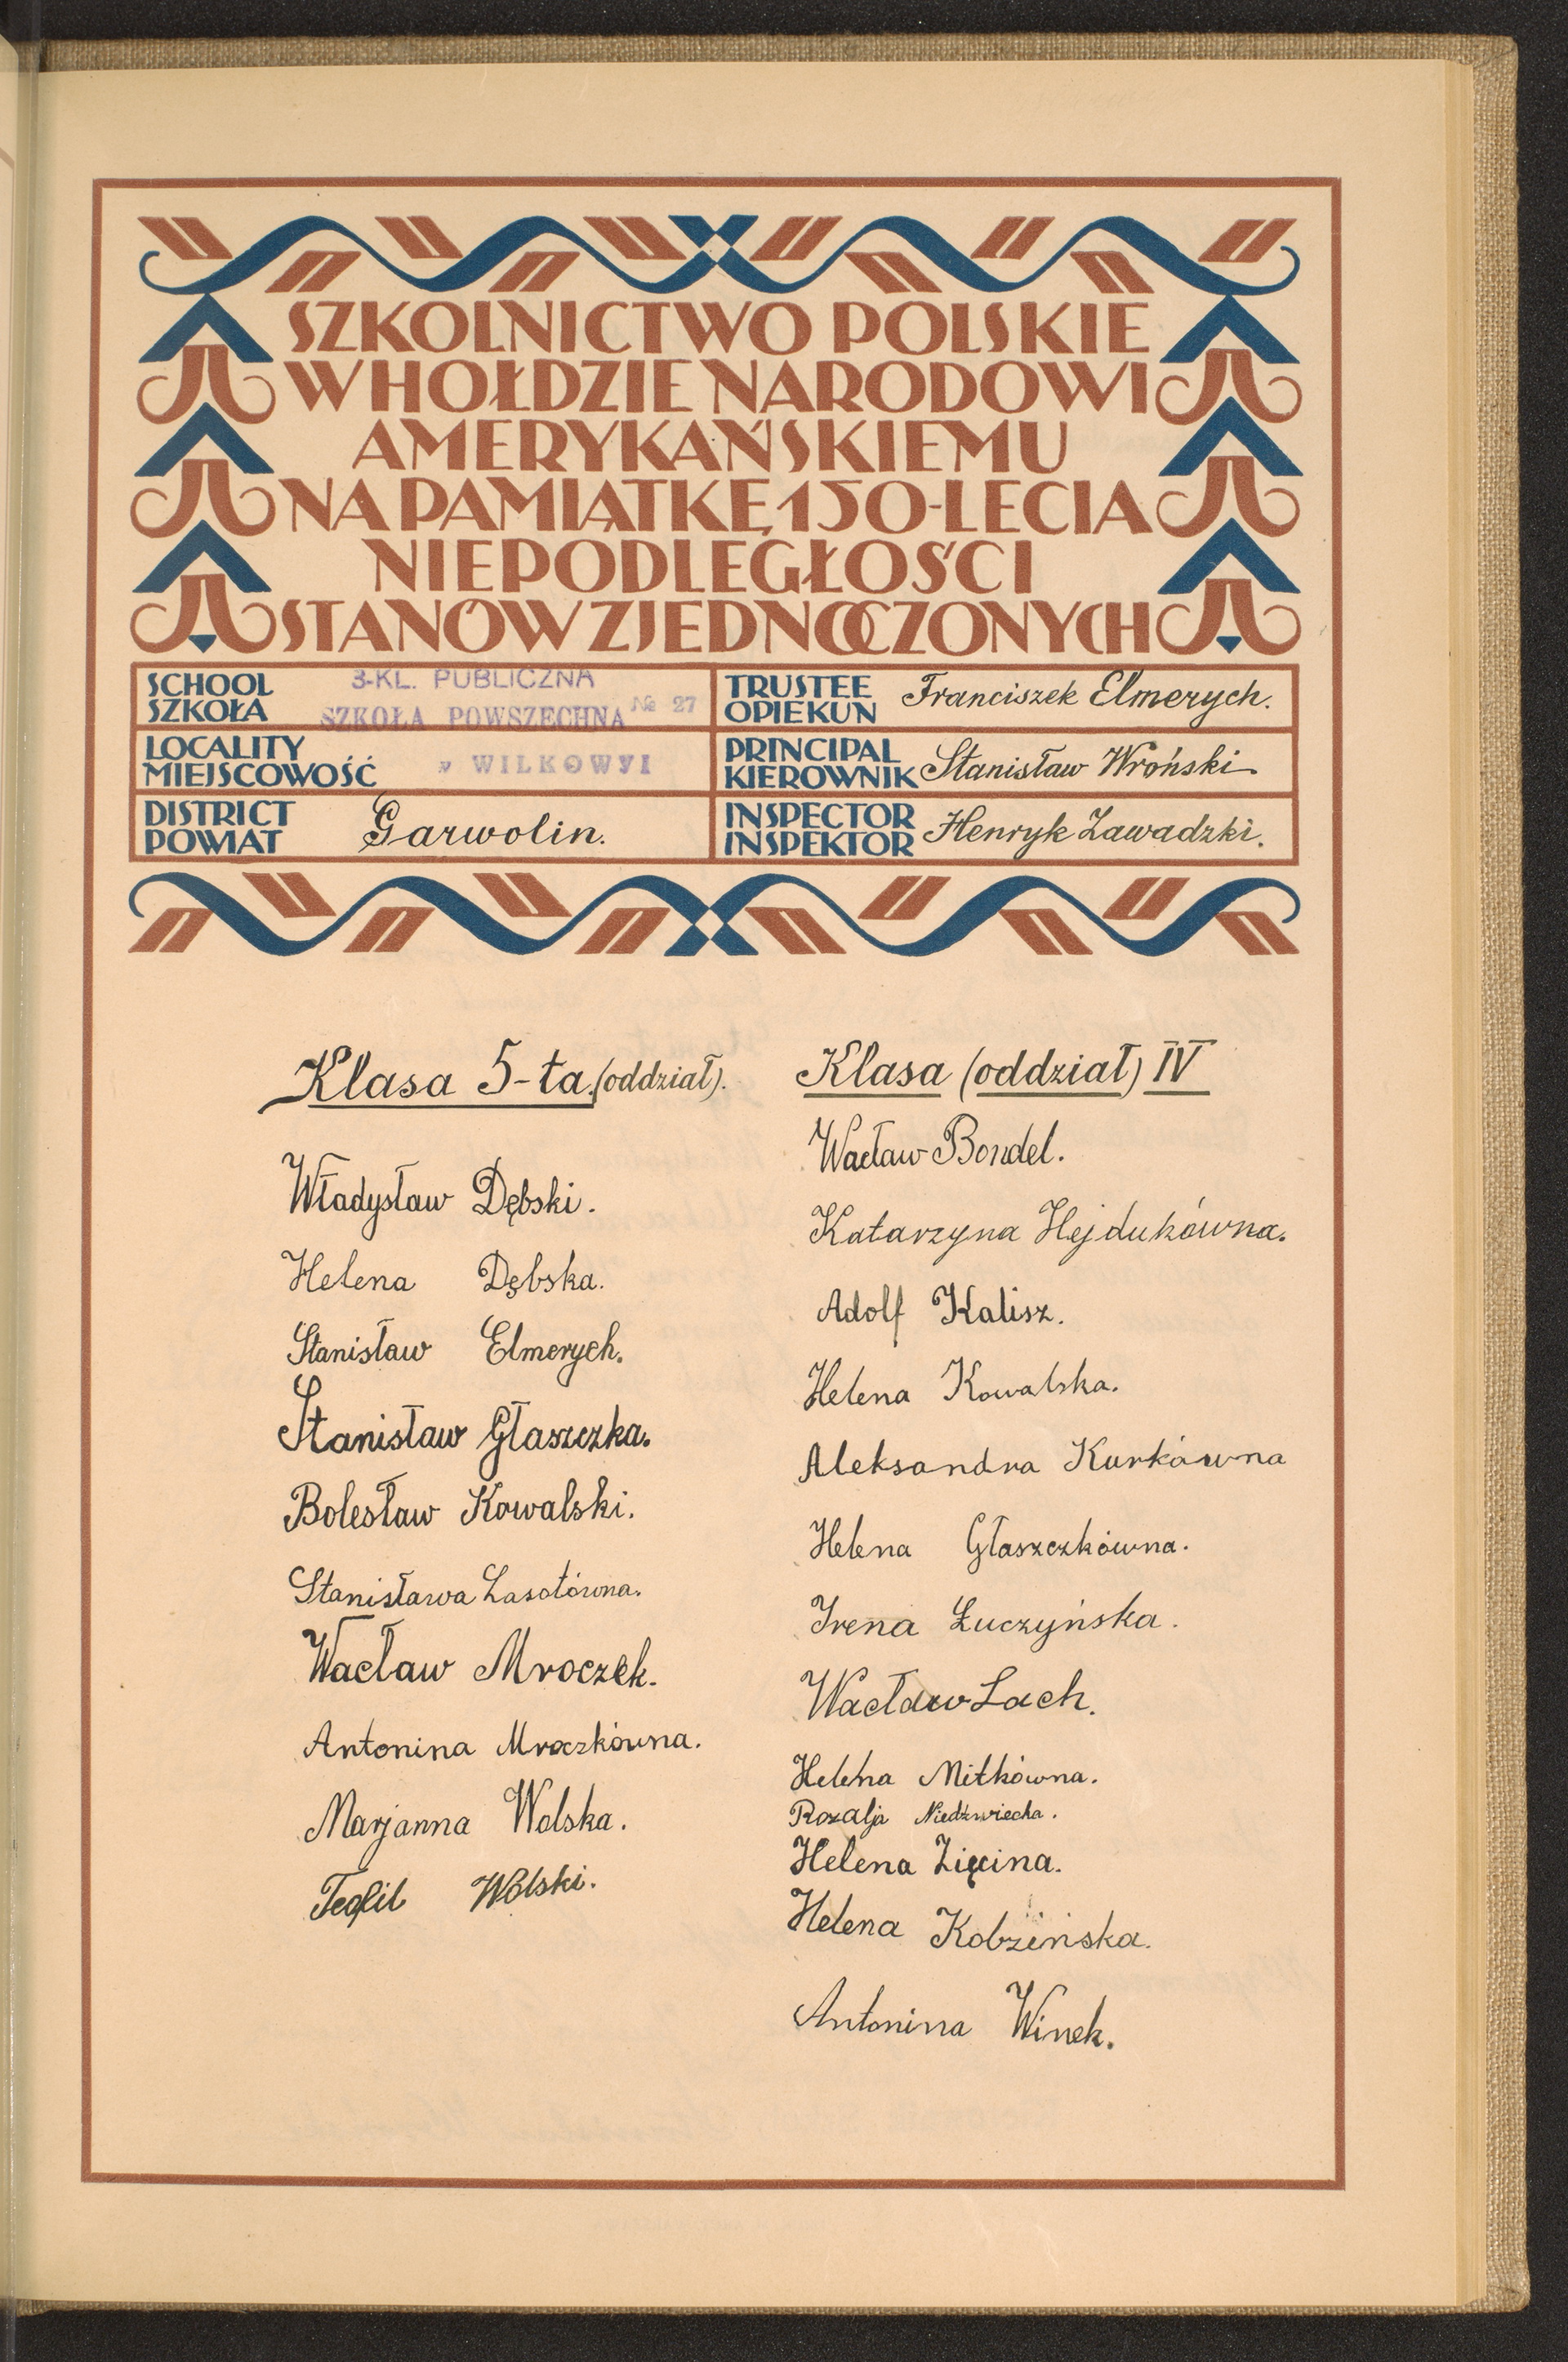 SZKOLNICTWO POLSKIE
W HOŁDZIE NARODOWI
AMERYKAŃSKIEMU
NA PAMIĄTKĘ 150-LECIA
NIEPODLEGŁOŚCI
STANÓW ZJEDNOCZONYCH
SCHOOL
SZKOŁA
3-KL. PUBLICZNA
SZKOŁA POWSZECHNA № 27
TRUSTEE
OPIEKUN
Franciszek Elmerych.
LOCALITY
MIEJSCOWOŚĆ
w WILKOWYI
PRINCIPAL
KIEROWNIK
Stanisław Wroński
DISTRICT
POWIAT
Garwolin.
INSPECTOR
INSPEKTOR
Henryk Zawadzki.
Klasa 5-ta.(oddział).
Władysław Dębski.
Helena Dębska.
Stanisław Elmerych.
Stanisław Głaszczka.
Bolesław Kowalski.
Stanisława Lasotówna.
Wacław Mroczek.
Antonina Mroczkówna.
Marjanna Wolska.
Teofil Wólski.
Klasa (oddział) IV
Wacław Bondel.
Katarzyna Hejdukówna.
Adolf Kalisz.
Helena Kowalska.
Aleksandra Kurkówna
Helena Głaszczkówna.
Irena Łuczyńska.
Wacław Lach.
Helena Mitkówna.
Rozalja Niedźwiecka.
Helena Zięcina.
Helena Kobzińska.
Antonina Winek.